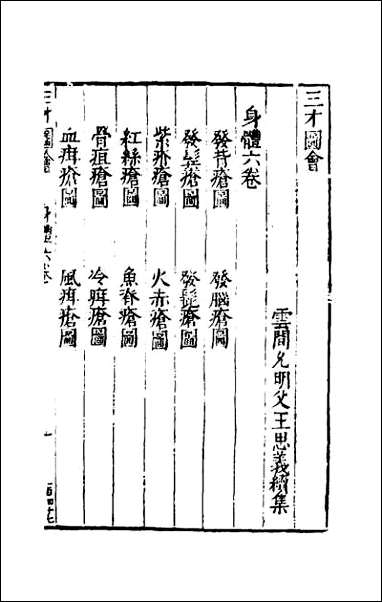 三才圖會
雲間允明父王思義續集
身體六卷
發背瘡圖 發腦瘡圖
發鬢瘡圖 發髭瘡圖
紫疥瘡圖 火赤瘡圖
紅絲瘡圖 魚脊瘡圖
骨疽瘡圖 冷疳瘡圖
血疳瘡圖 風疳瘡圖
三才圖會 身體六卷 一